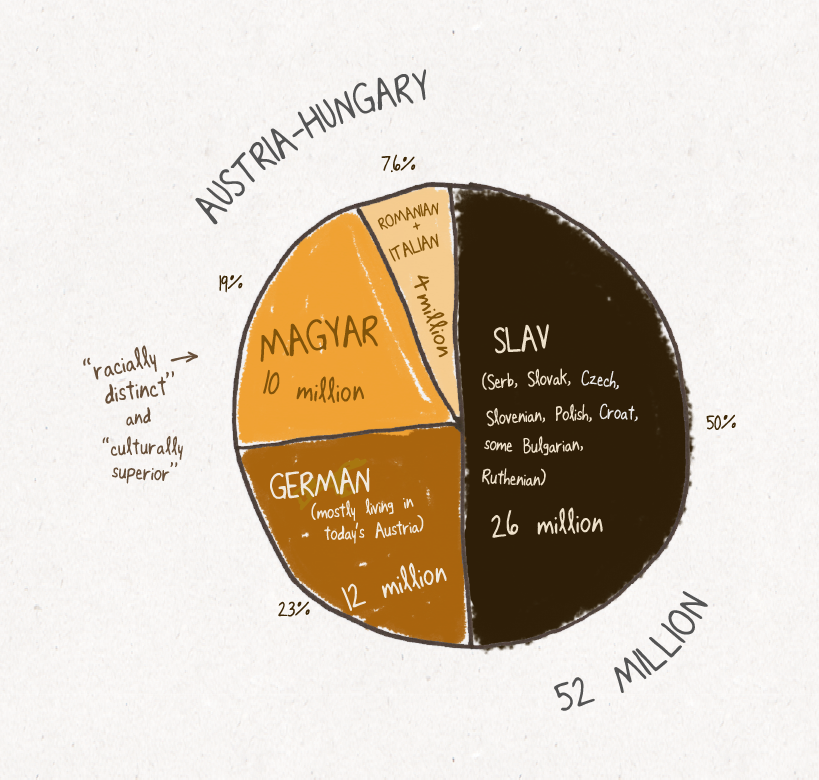 AUSTRIA-HUNGARY
7.6%
ROMANIAN
+
ITALIAN
4 million
19%
MAGYAR
10 million
"racially →
distinct"
and
"culturally
superior"
SLAV
(Serb, Slovak, Czech,
Slovenian, Polish, Croat,
some Bulgarian,
Ruthenian)
26 million
50%
GERMAN
(mostly living in
today's Austria)
12 million
23%
52 MILLION